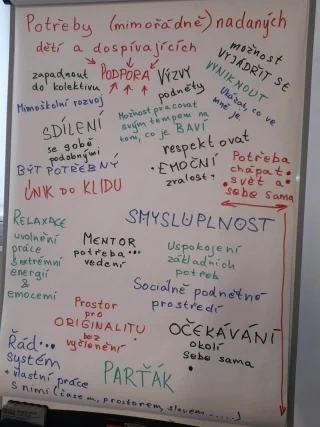 Potřeby (mimořádně) nadaných
dětí a dospívajících
zapadnout
do kolektivu
PODPORA
VÝZVY
podněty
možnost
VYJÁDŘIT SE
VYNIKNOUT
Ukázat, co ve
mně je
Mimoškolní rozvoj
Možnost pracovat
svým tempem na
tom, co je BAVÍ
SDÍLENÍ
se sobě
podobnými
respektovat
• EMOČNÍ
zralost?
BÝT POTŘEBNÝ
ÚNIK DO KLIDU
Potřeba
chápat
• svět a •
sebe sama
RELAXACE
uvolnění
práce
s extrémní
energií
&
emocemi
SMYSLUPLNOST
MENTOR
potřeba...
vedení
Uspokojení
základních
potřeb
Sociálně podnětné
prostředí
Prostor
pro
ORIGINALITU
bez
vyčlenění
OČEKÁVÁNÍ
okolí
sebe sama
Řád...
systém
+ vlastní práce
s nimi (časem, prostorem, slovem.....)
PARŤÁK